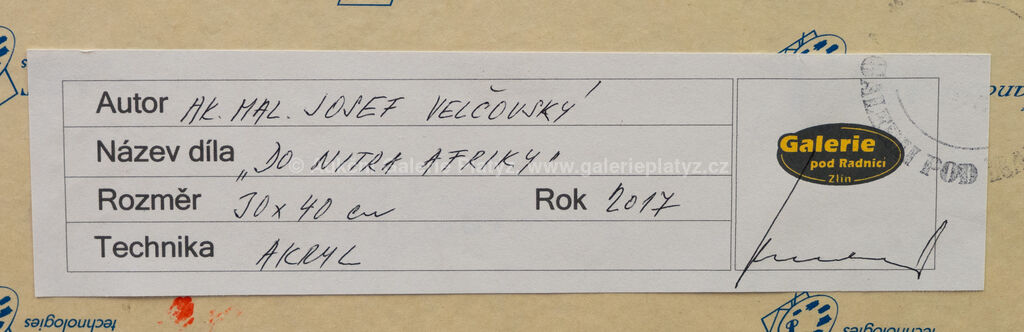 Autor AK. MAL. JOSEF VELČOVSKÝ
Název díla „DO NITRA AFRIKY"
Rozměr 30 x 40 cm Rok 2017
Technika AKRYL
Galerie
pod Radnicí
Zlín
GALERIE POD
www.galerieplatyz.cz
technologies
technologies